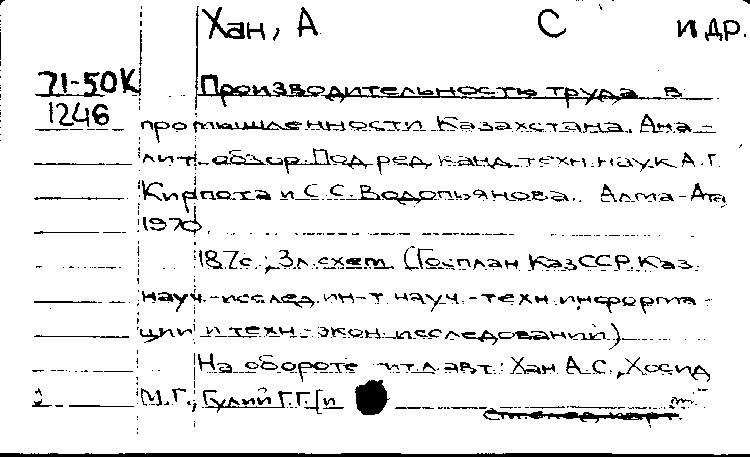 Хан, А С И ДР.
71-50К Производительностью труда в
1246 промышленности Казахстана. Ана-
лит. обзор. Под ред. канд. техн. наук А. Г.
Кирпота и С. С. Водопьянова. Алма-Ата
1970.
187с.; 3л.схем. (Госплан КазССР. Каз.
науч.-исслед. ин-т науч.-техн. информа-
ции и техн.-экон. исследований)
На обороте тит.л.авт.: Хан А.С., Хосид
М.Г., Гулий Г.Г. [и
см.след.карт.